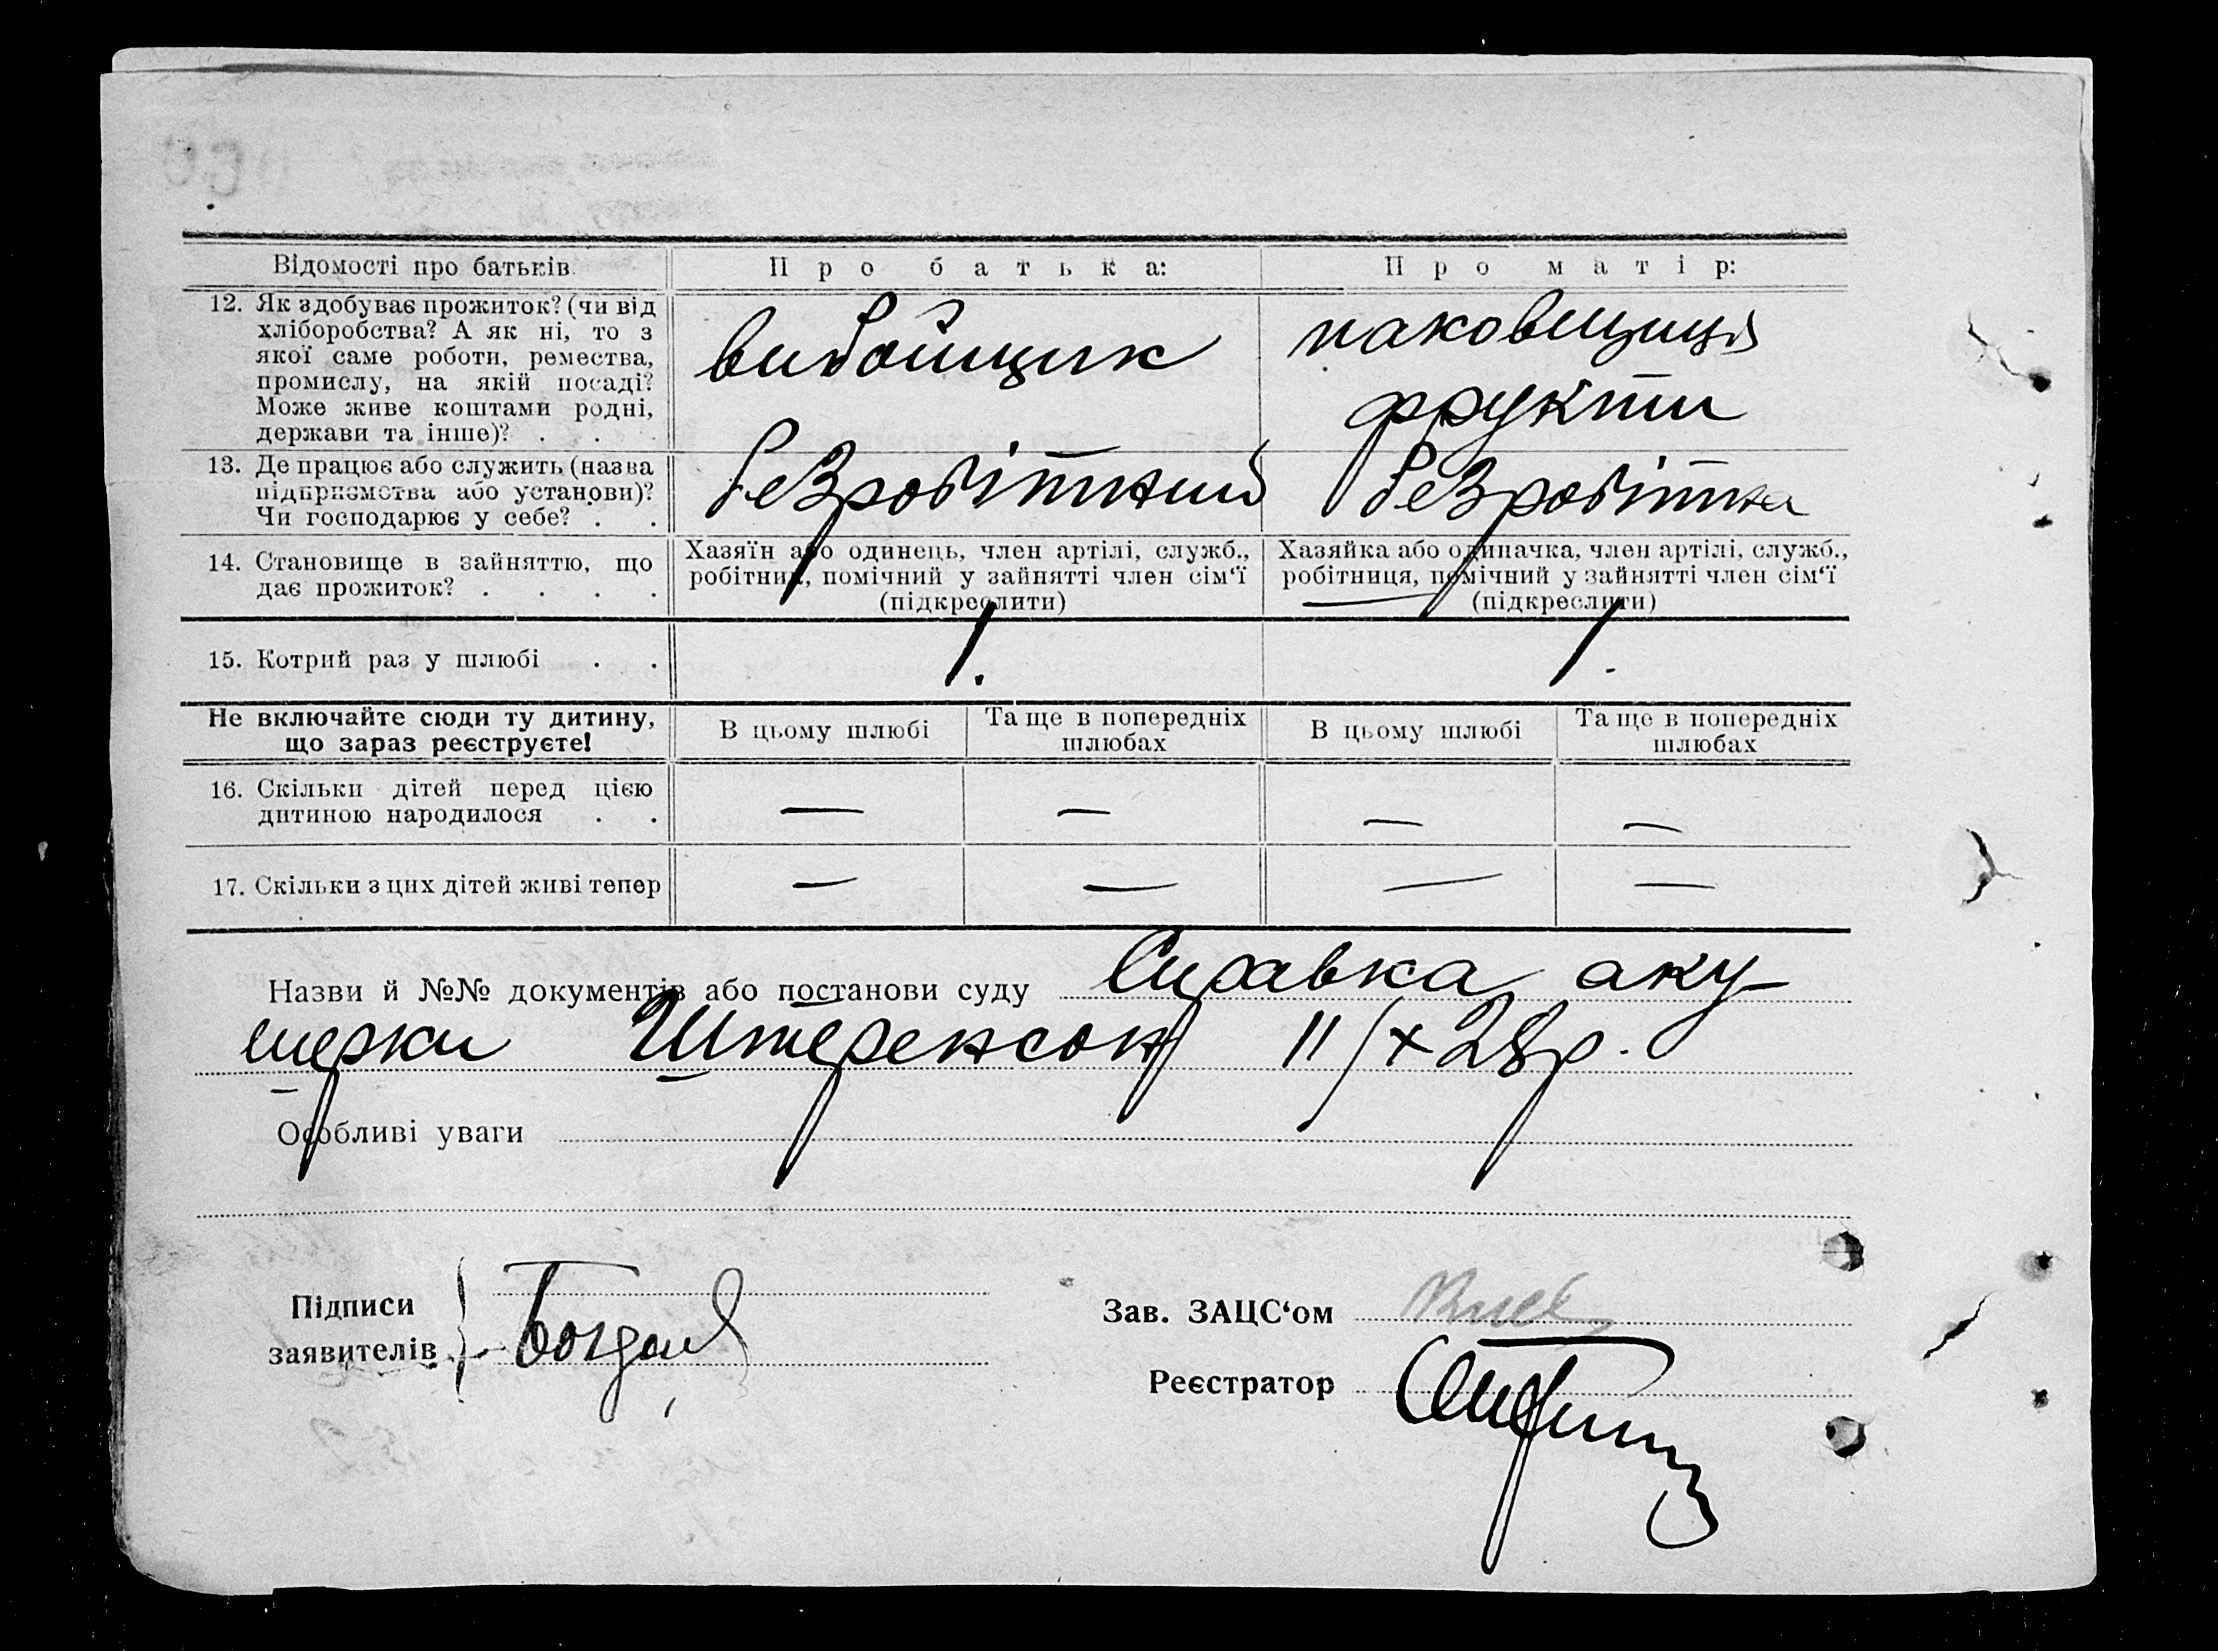 Відомості про батьків
Про батька:
Про матір:
12. Як здобуває прожиток? (чи від
хліборобства? А як ні, то з
якої саме роботи, ремества,
промислу, на якій посаді?
Може живе коштами родні,
держави та інше)? . .
вибойщик
паковщиця
фрукти
13. Де працює або служить (назва
підприємства або установи)?
Чи господарює у себе? . .
безробітний
безробітна
14. Становище в зайняттю, що
дає прожиток? . . . .
Хазяїн або одинець, член артілі, служб.,
робітник, помічний у зайнятті член сім‘ї
(підкреслити)
Хазяйка або одиначка, член артілі, служб.,
робітниця, помічний у зайнятті член сім‘ї
(підкреслити)
15. Котрий раз у шлюбі . .
1.
1.
Не включайте сюди ту дитину,
що зараз реєструєте!
В цьому шлюбі
Та ще в попередніх
шлюбах
В цьому шлюбі
Та ще в попередніх
шлюбах
16. Скільки дітей перед цією
дитиною народилося . .
— — — —
17. Скільки з цих дітей живі тепер
— — — —
Назви й №№ документів або постанови суду Справка аку-
шерки Штеренсон 11/X 28р.
Особливі уваги
Підписи
заявителів
Зав. ЗАЦС‘ом
Реєстратор